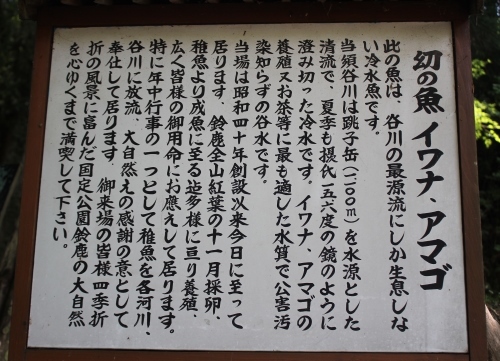 幻の魚 イワナ、アマゴ
此の魚は、谷川の最源流にしか生息しな
い冷水魚です。
当須谷川は銚子岳(一一〇〇m)を水源とした
清流で、夏季も摂氏一五、六度の鏡のように
澄み切った冷水です。イワナ、アマゴの
養殖又お茶等に最も適した水質で公害汚
染知らずの谷水です。
当場は昭和四十年創設以来今日に至って
居ります。鈴鹿全山紅葉の十一月採卵、
稚魚より成魚に至る迄多様に亘り養殖、
広く皆様の御用命にお應えして居ります。
特に年中行事の一つとして稚魚を各河川、
谷川に放流、大自然えの感謝の意として
奉仕して居ります。御来場の皆様四季折
折の風景に富んだ国定公園鈴鹿の大自然
を心ゆくまで満喫して下さい。